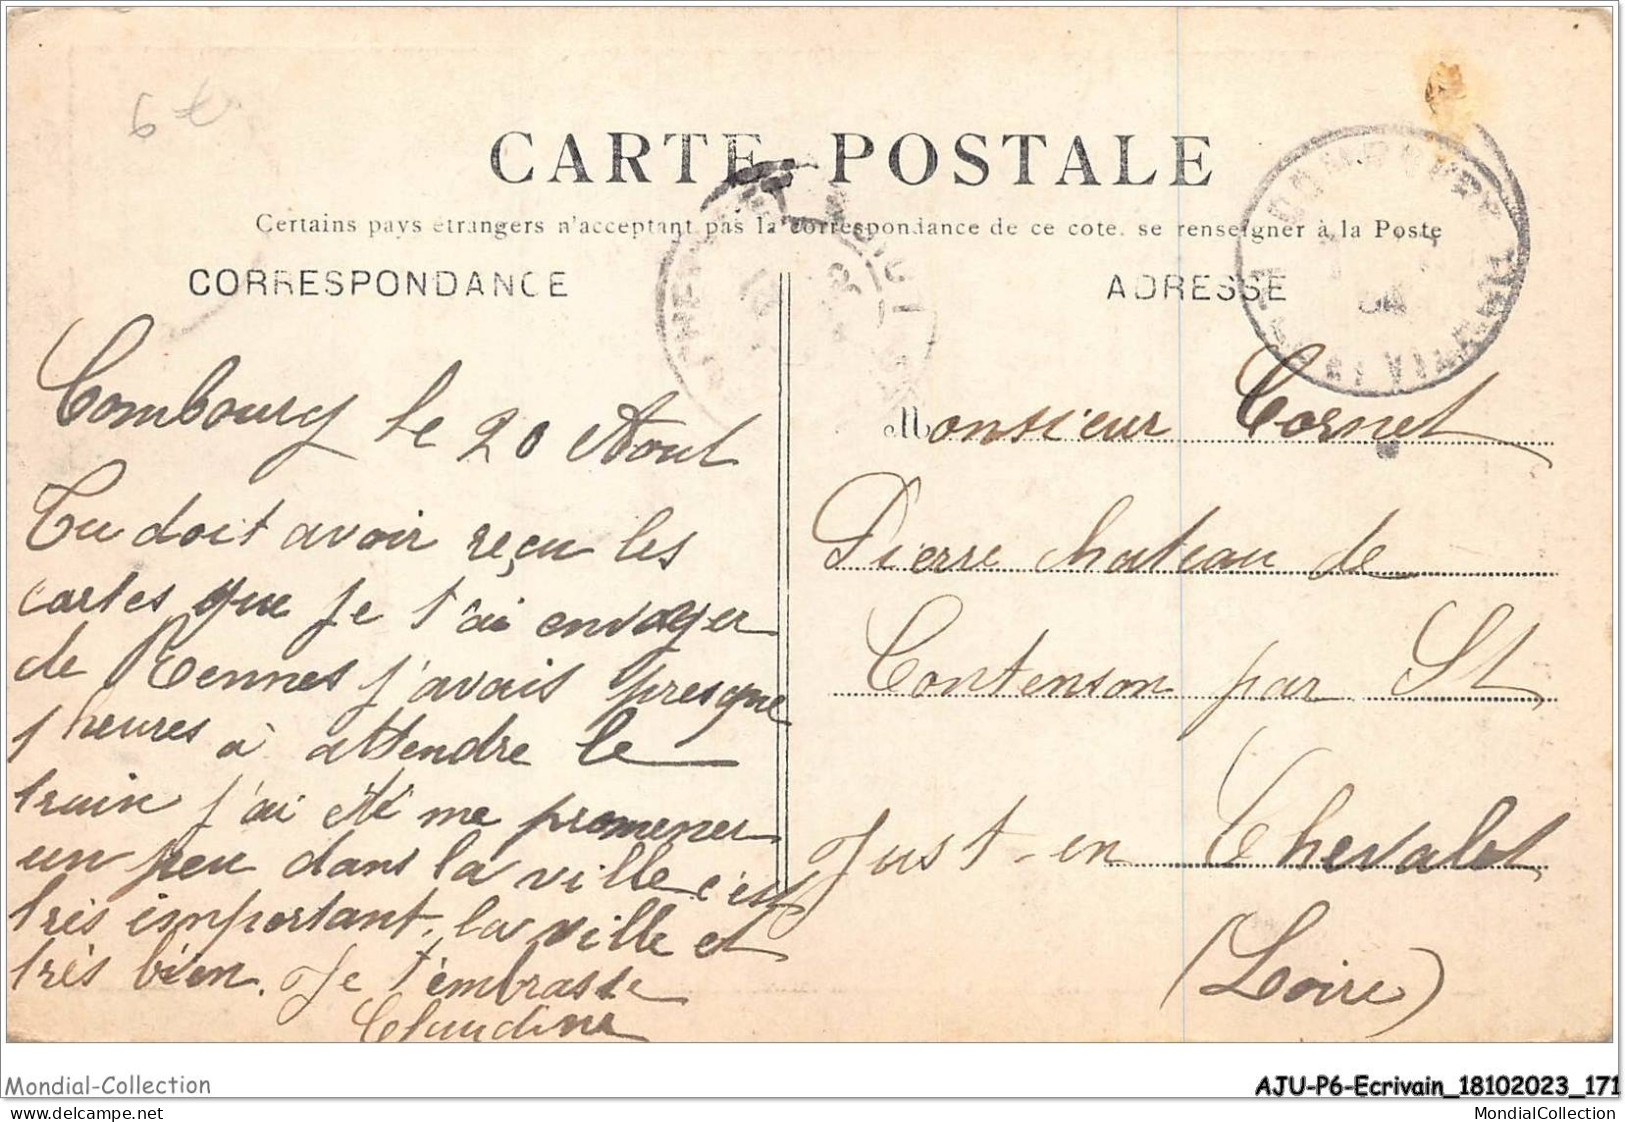 6 €
CARTE POSTALE
Certains pays étrangers n'acceptant pas la correspondance de ce côté, se renseigner à la Poste
CORRESPONDANCE
ADRESSE
Combourg le 20 Aout
Tu doit avoir reçu les
cartes que je t'ai envoyer
de Rennes j'avais presque
1 heures à attendre le
train j'ai été me promener
un peu dans la ville c'est
très important, la ville et
très bien. Je t'embrasse
Claudine
Monsieur Cornet
Pierre chateau de
Contenson par St
Just-en Chevalet
(Loire)
Mondial-Collection
AJU-P6-Ecrivain_18102023_171
delcampe.net
MondialCollection